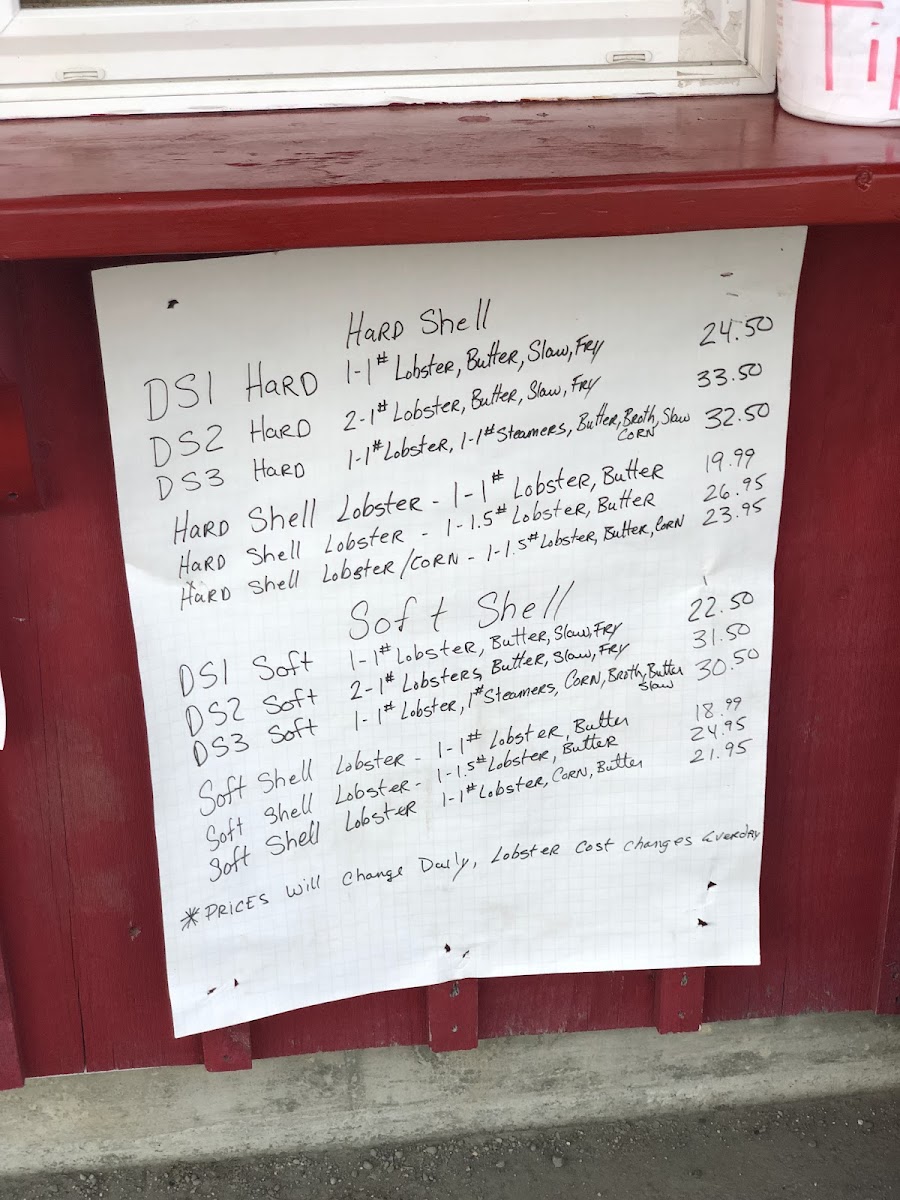 Tip
Hard Shell
DS1 Hard 1-1# Lobster, Butter, Slaw, Fry 24.50
DS2 Hard 2-1# Lobster, Butter, Slaw, Fry 33.50
DS3 Hard 1-1# Lobster, 1-1# Steamers, Butter, Broth, Slaw 32.50
Corn
Hard Shell Lobster - 1-1# Lobster, Butter 19.99
Hard Shell Lobster - 1-1.5# Lobster, Butter 26.95
Hard Shell Lobster/Corn - 1-1.5# Lobster, Butter, Corn 23.95
Soft Shell
DS1 Soft 1-1# Lobster, Butter, Slaw, Fry 22.50
DS2 Soft 2-1# Lobsters, Butter, Slaw, Fry 31.50
DS3 Soft 1-1# Lobster, 1# Steamers, Corn, Broth, Butter 30.50
Slaw
Soft Shell Lobster - 1-1# Lobster, Butter 18.99
Soft Shell Lobster - 1-1.5# Lobster, Butter 24.95
Soft Shell Lobster 1-1# Lobster, Corn, Butter 21.95
*Prices will change Daily, Lobster Cost changes Everday